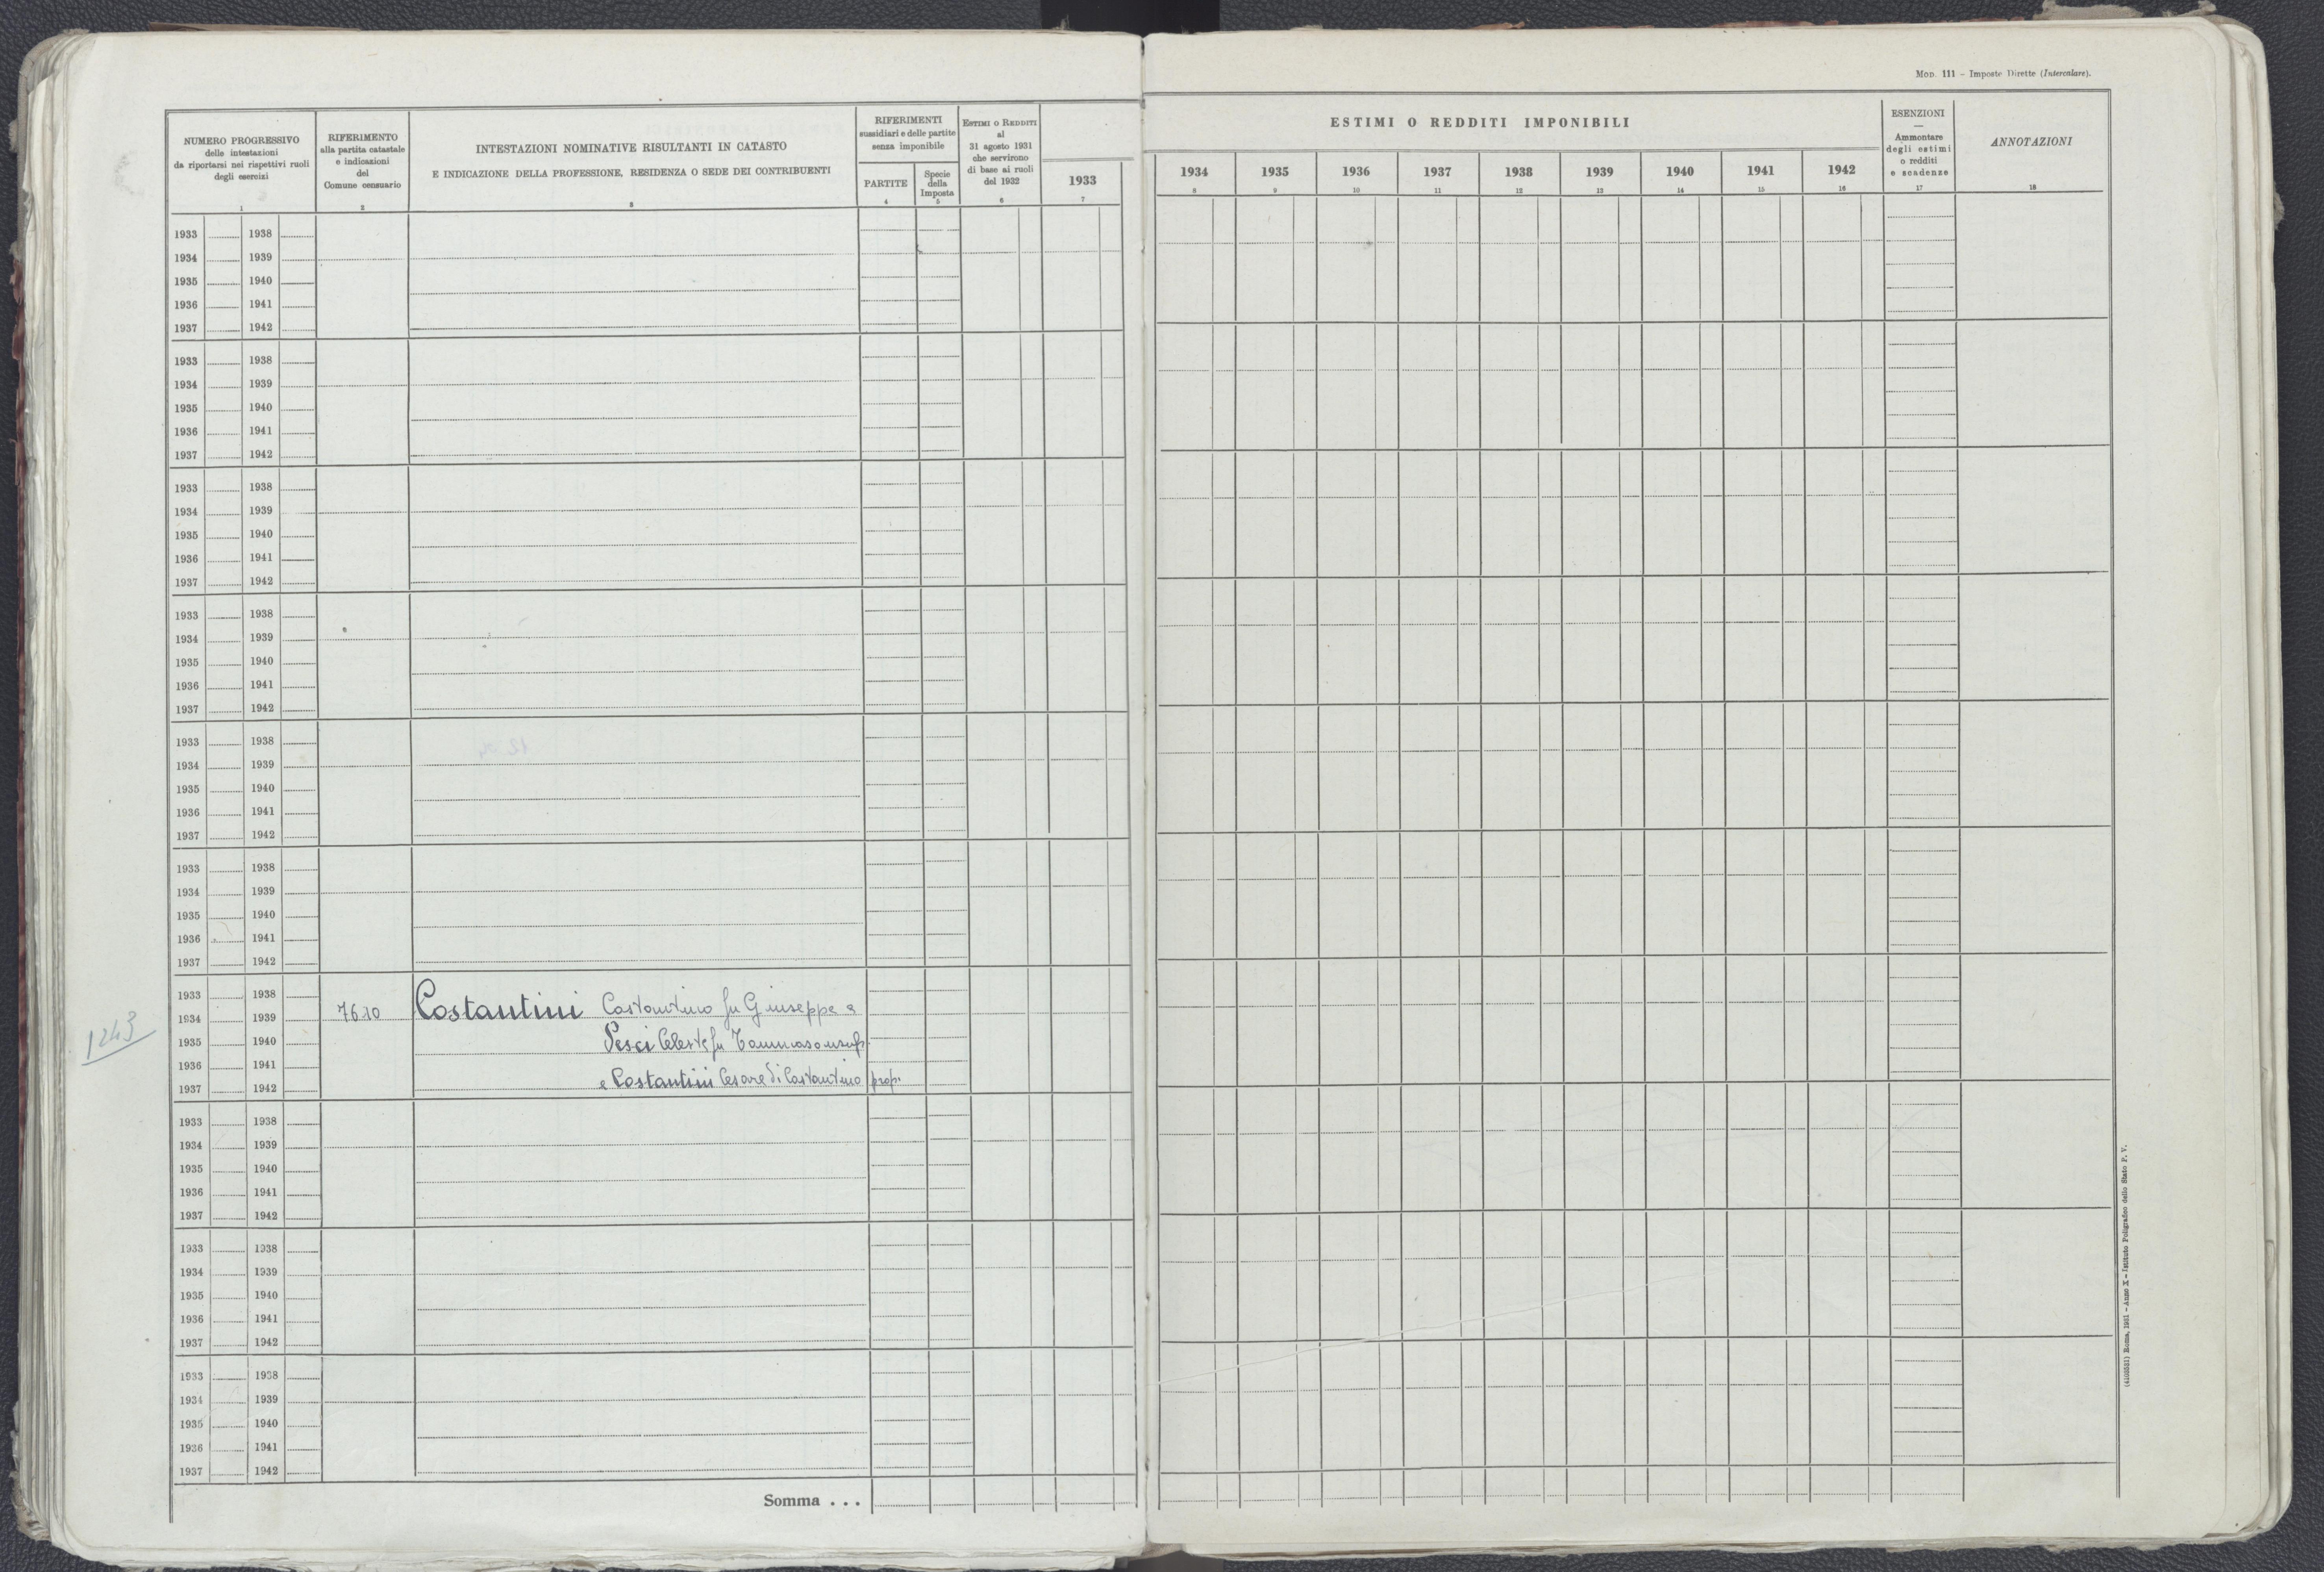 Mod. 111 - Imposte Dirette (Intercalare).
NUMERO PROGRESSIVO
delle intestazioni
da riportarsi nei rispettivi ruoli
degli esercizi
1
RIFERIMENTO
alla partita catastale
e indicazioni
del
Comune censuario
2
INTESTAZIONI NOMINATIVE RISULTANTI IN CATASTO
E INDICAZIONE DELLA PROFESSIONE, RESIDENZA O SEDE DEI CONTRIBUENTI
3
RIFERIMENTI
sussidiari e delle partite
senza imponibile
PARTITE
4
Specie
della
Imposta
5
ESTIMI O REDDITI
al
31 agosto 1931
che servirono
di base ai ruoli
del 1932
6
1933
7
ESTIMI O REDDITI IMPONIBILI
1934 1935 1936 1937 1938 1939 1940 1941 1942
8 9 10 11 12 13 14 15 16
ESENZIONI
—
Ammontare
degli estimi
o redditi
e scadenze
17
ANNOTAZIONI
18
1933 1938
1934 1939
1935 1940
1936 1941
1937 1942
1933 1938
1934 1939
1935 1940
1936 1941
1937 1942
1933 1938
1934 1939
1935 1940
1936 1941
1937 1942
1933 1938
1934 1939
1935 1940
1936 1941
1937 1942
1933 1938
1934 1939
1935 1940
1936 1941
1937 1942
1933 1938
1934 1939
1935 1940
1936 1941
1937 1942
1933 1938
1934 1939 7610 Costantini Costantino fu Giuseppe e
1243
1935 1940 Pesci Celeste fu Tommaso usuf.
1936 1941
1937 1942 e Costantini Cesare di Costantino prop.
1933 1938
1934 1939
1935 1940
1936 1941
1937 1942
1933 1938
1934 1939
1935 1940
1936 1941
1937 1942
1933 1938
1934 1939
1935 1940
1936 1941
1937 1942
Somma . . .
(4103551) Roma, 1931 - Anno X - Istituto Poligrafico dello Stato P. V.